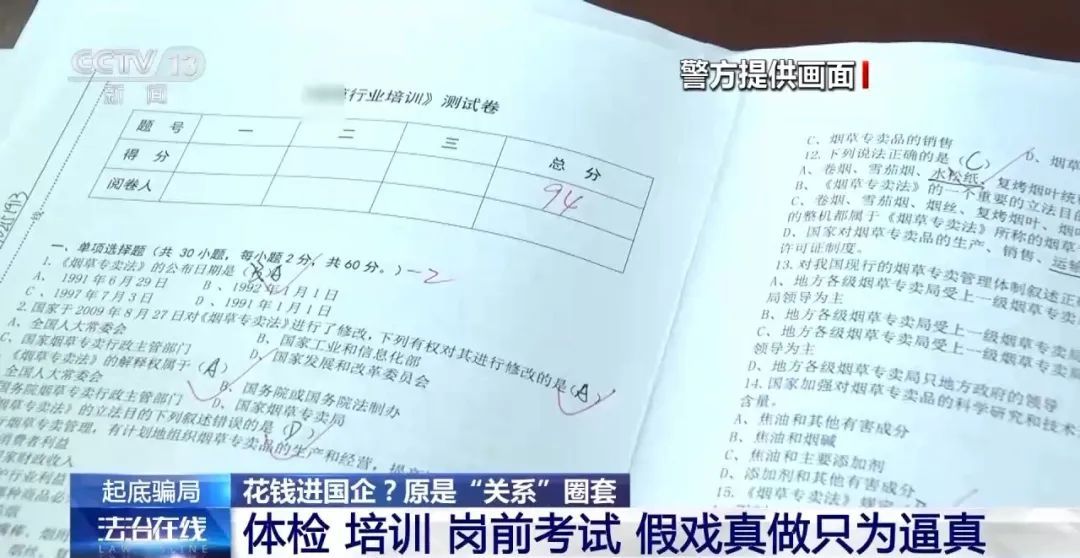 CCTV 13
新闻
警方提供画面
行业培训》测试卷
题 号 一 二 三 总 分
得 分 94
阅卷人
一、单项选择题（共 30 小题，每小题 2 分，共 60 分。）-2
1.《烟草专卖法》的公布日期是（A）
A、1991 年 6 月 29 日 B、1992 年 1 月 1 日
C、1997 年 7 月 3 日 D、1991 年 1 月 1 日
2.国家于 2009 年 8 月 27 日对《烟草专卖法》进行了修改，下列有权对其进行修改的是（A）
A、全国人大常委会 B、国家工业和信息化部
C、国家烟草专卖行政主管部门 D、国家发展和改革委员会
《烟草专卖法》的解释权属于（A）
全国人大常委会 B、国务院或国务院法制办
国务院烟草专卖行政主管部门 D、国家烟草专卖局
草专卖法》的立法目的下列叙述错误的是（D）
烟草专卖管理，有计划地组织烟草专卖品的生产和经营，提高
消费者利益
国家财政收入
C、烟草专卖品的销售 D、烟草
12.下列说法正确的是（C）
A、卷烟、雪茄烟、水松纸、复烤烟叶统
B、《烟草专卖法》的一个重要的立法目的
C、卷烟、雪茄烟、烟丝、复烤烟叶、烟
的整机都属于《烟草专卖法》所称的烟草
D、国家对烟草专卖品的生产、销售、运输
许可证制度。
13.对我国现行的烟草专卖管理体制叙述正
A、地方各级烟草专卖局受上一级烟草专
局领导为主
B、地方各级烟草专卖局受上一级烟草专卖
C、地方各级烟草专卖局受上一级烟草专卖局
领导为主
D、地方各级烟草专卖局只地方政府的领导
14.国家加强对烟草专卖品的科学研究和技术
含量。
A、焦油和其他有害成分
B、焦油和烟碱
C、焦油和主要添加剂
D、添加剂和其他有害成分
15.《烟草专卖法》规定
起底骗局
花钱进国企？原是“关系”圈套
法治在线
体检 培训 岗前考试 假戏真做只为逼真